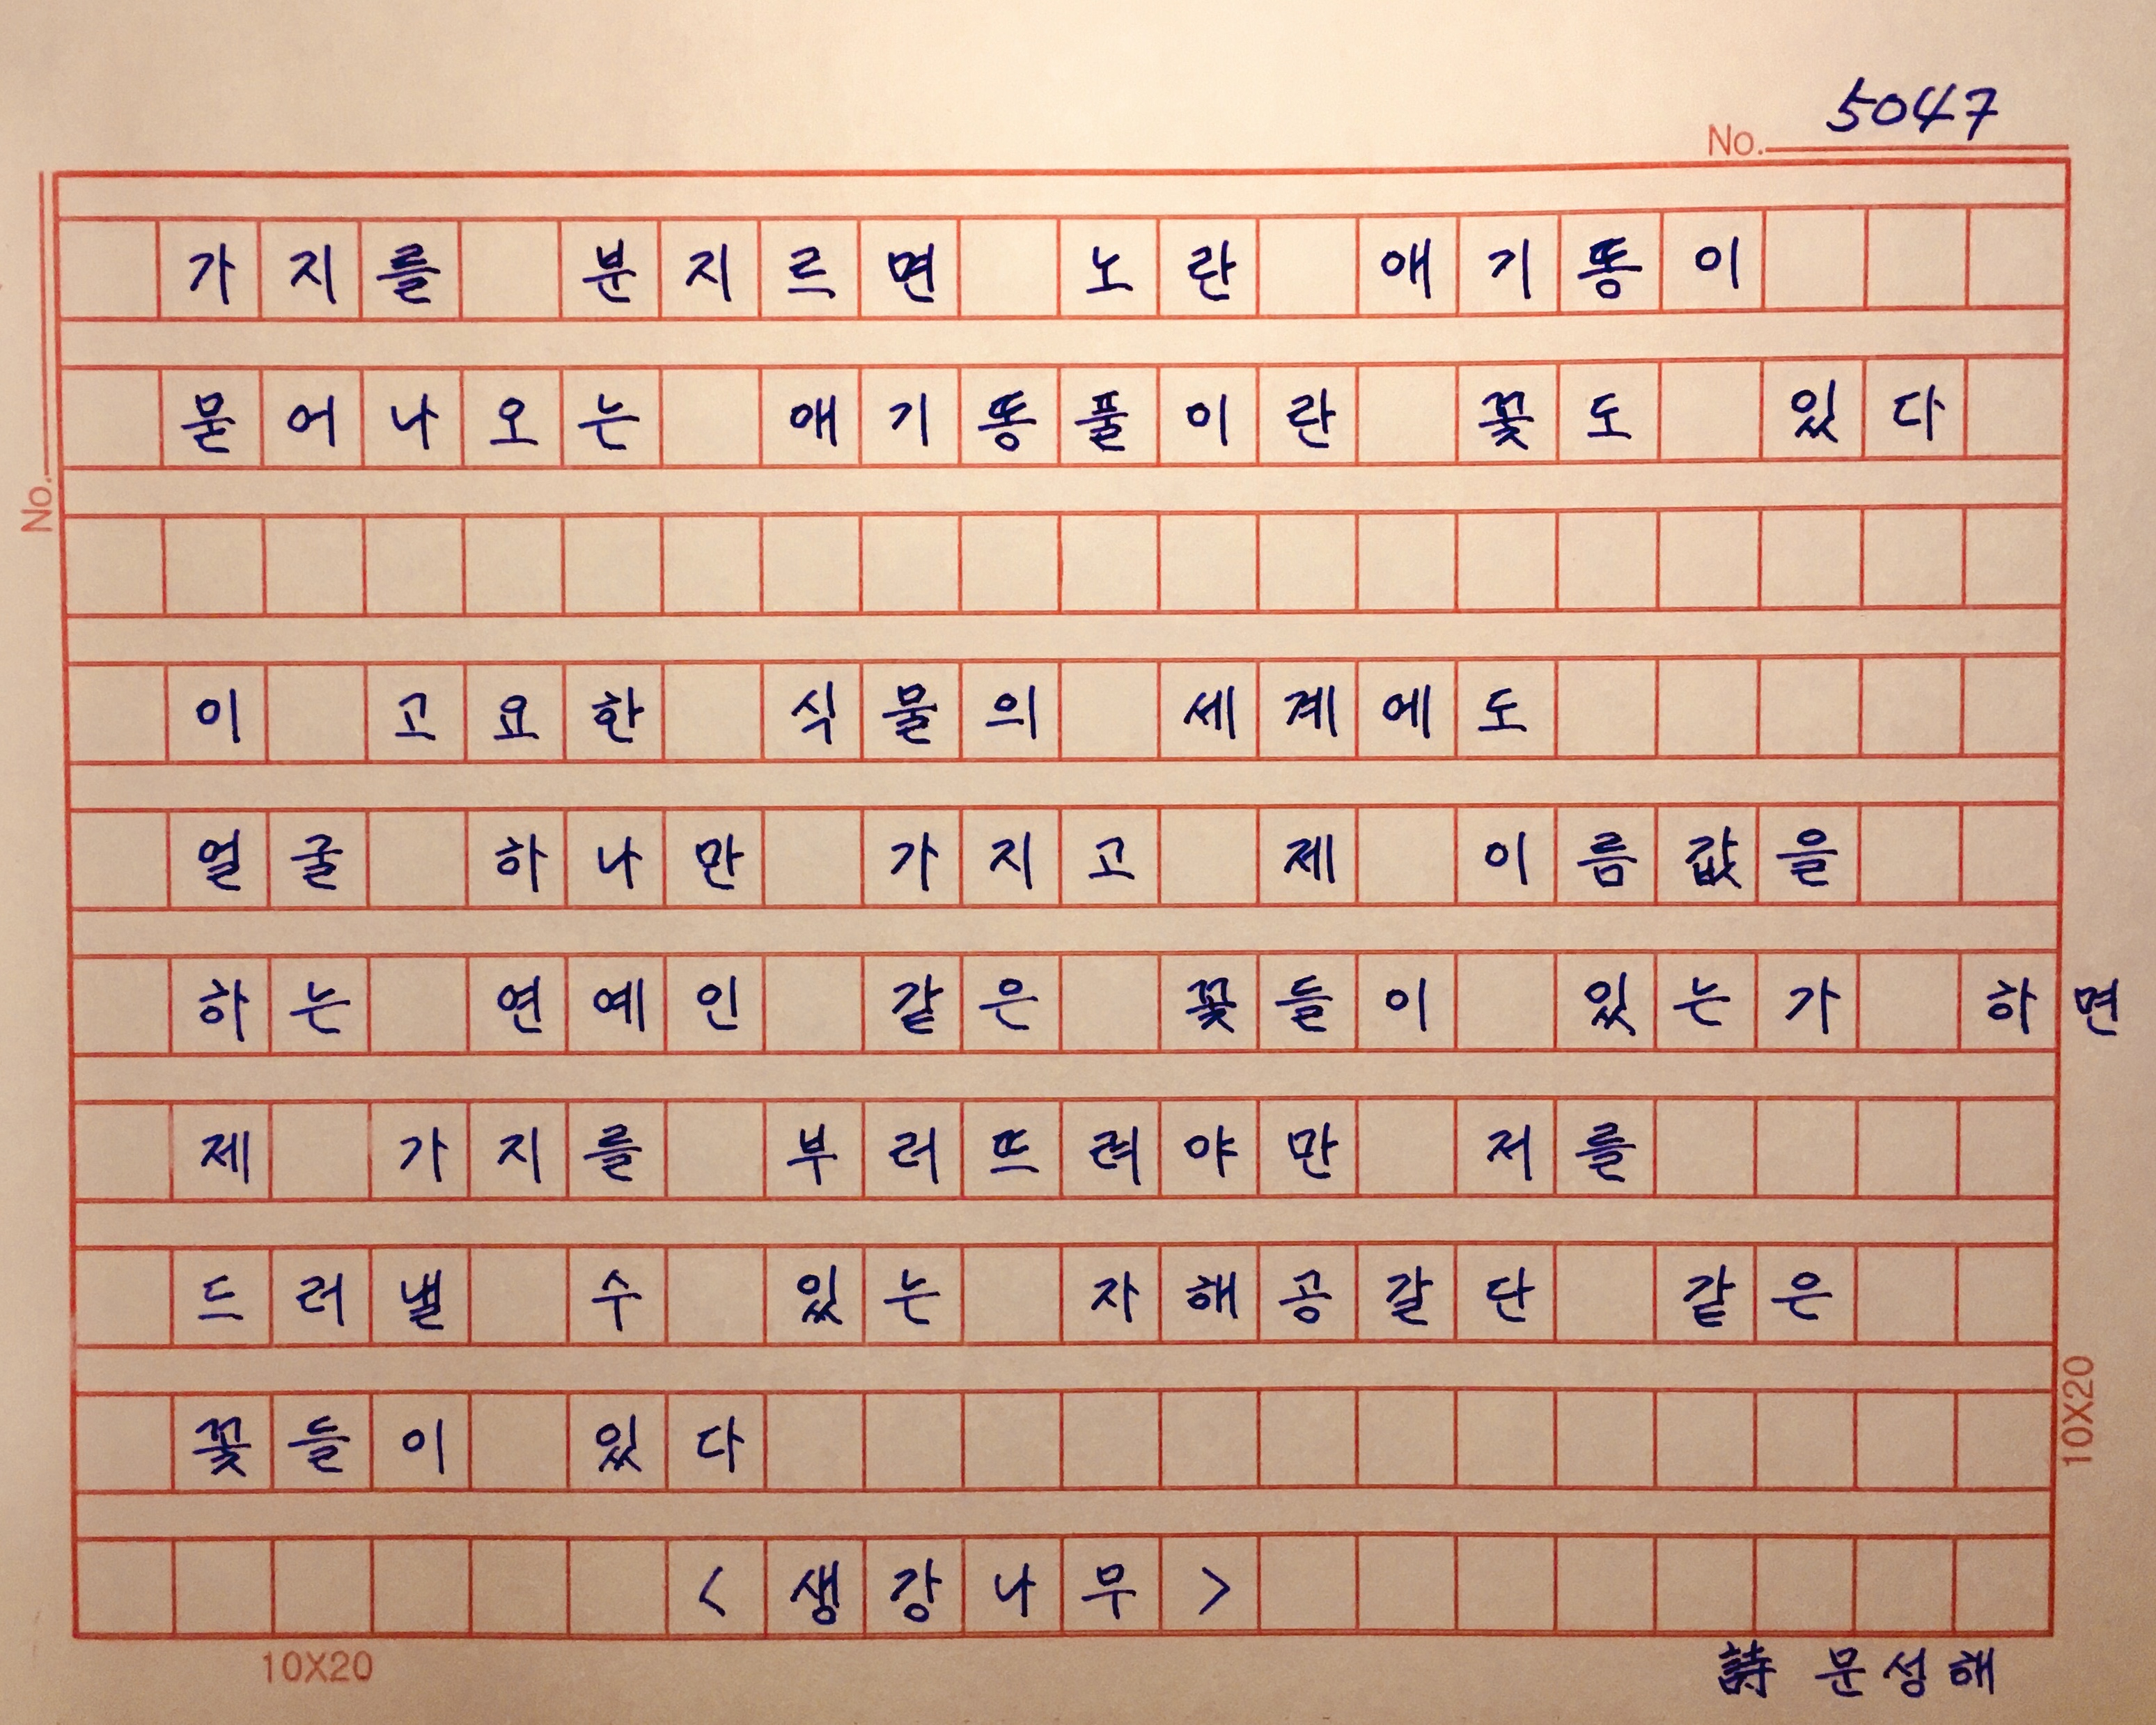 No. 5047
가지를 분지르면 노란 애기똥이
묻어나오는 애기똥풀이란 꽃도 있다
No.
이 고요한 식물의 세계에도
얼굴 하나만 가지고 제 이름값을
하는 연예인 같은 꽃들이 있는가 하면
제 가지를 부러뜨려야만 저를
드러낼 수 있는 자해공갈단 같은
꽃들이 있다
10X20
<생강나무>
10X20
詩 문성해